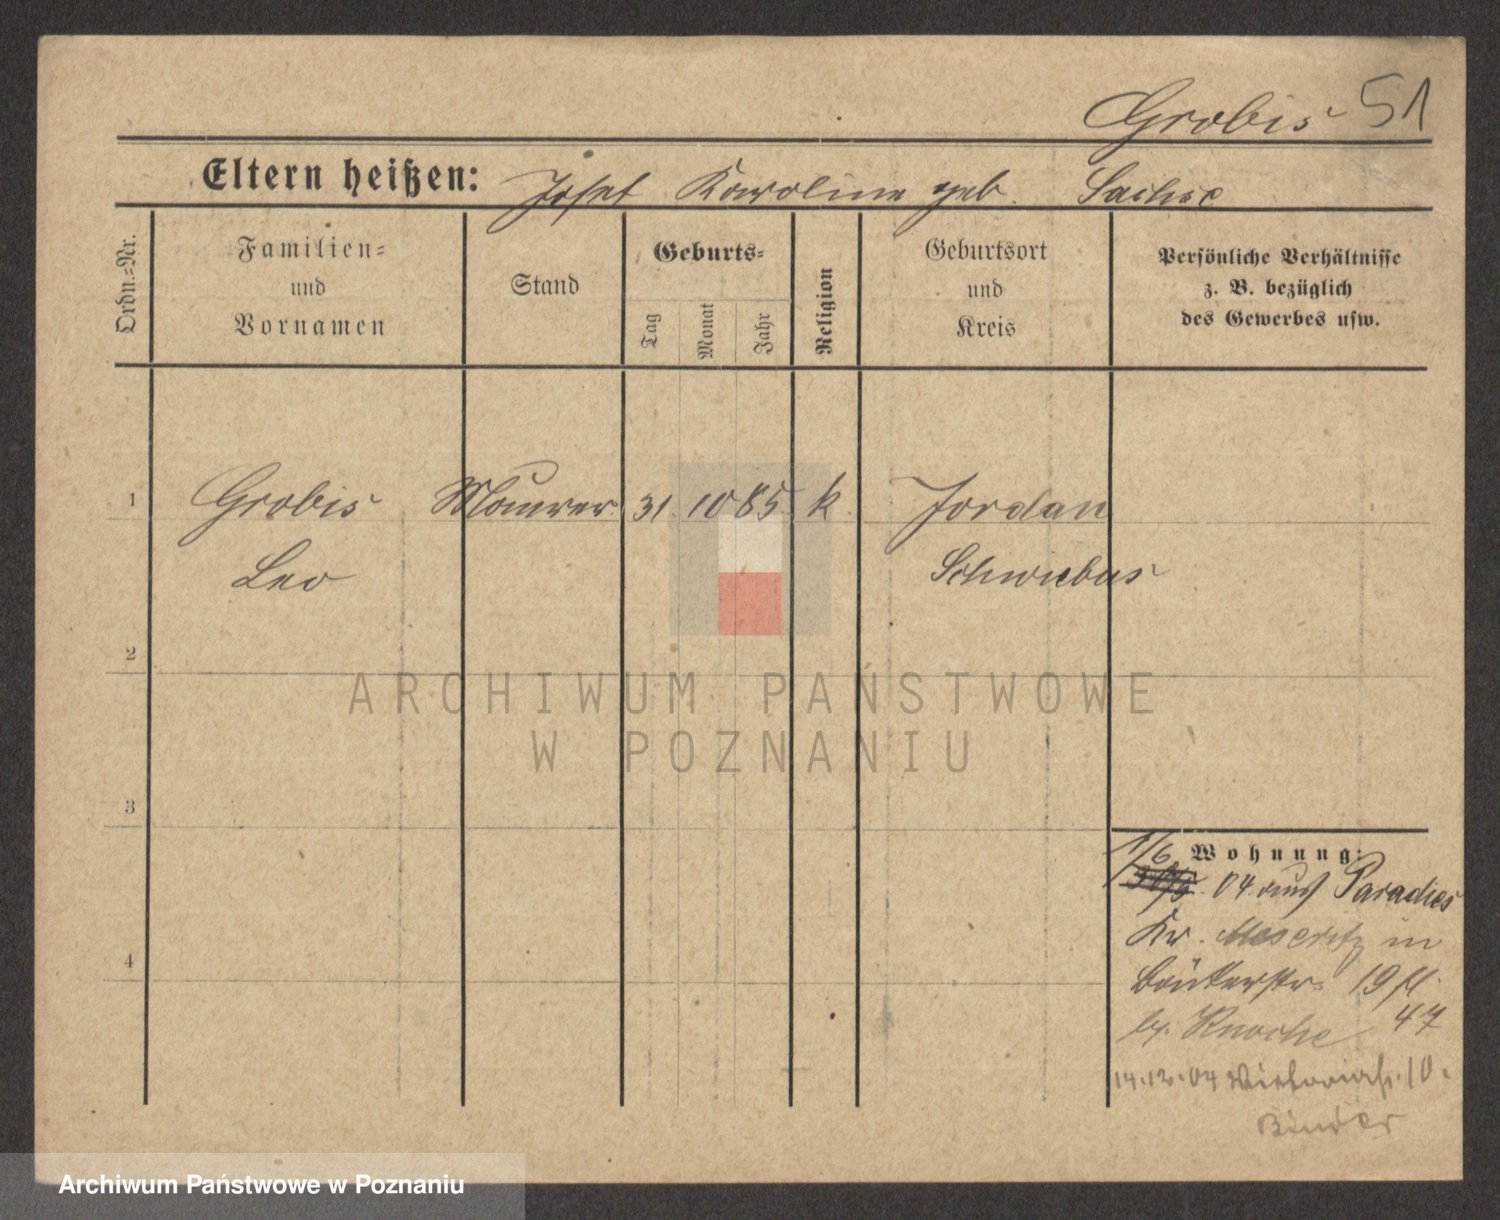 Grobis 51
Eltern heißen: Josef Karoline geb. Sachse
Ordn.=Nr.
Familien=
und
Vornamen
Stand
Geburts=
Tag
Monat
Jahr
Religion
Geburtsort
und
Kreis
Persönliche Verhältnisse
z. B. bezüglich
des Gewerbes usw.
1 Grobis Maurer 31. 10 85 k. Jordan
Leo Schwiebus
2
3
4
Wohnung:
1/6 04 aus Paradies
Kr. Meseritz in
19
b. Knoche 47
14.12.04 Viktoriastr. 10.
Binder
ARCHIWUM PAŃSTWOWE
W POZNANIU
Archiwum Państwowe w Poznaniu